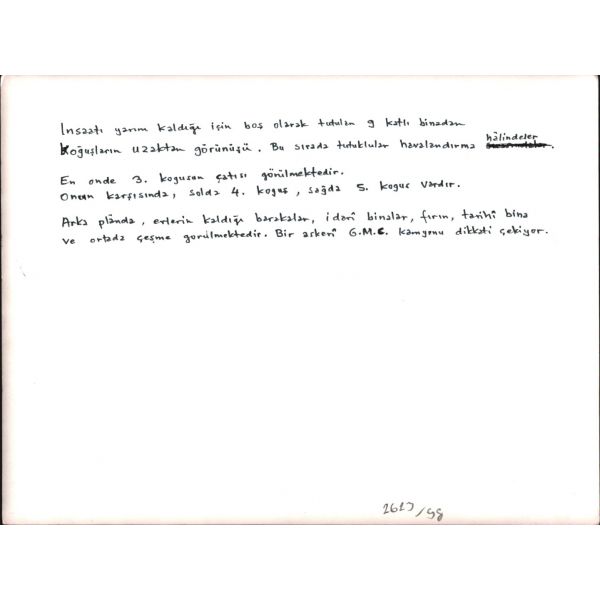 Insaatı yarım kaldığı için boş olarak tutulan 9 katlı binadan
Koğuşların uzaktan görünüşü. Bu sırada tutuklular havalandırma hâlindeler.
En onde 3. kogusun çatısı görülmektedir.
Onun karşısında, solda 4. koguş, sağda 5. kogus vardır.
Arka plânda, erlerin kaldığı barakalar, idarî binalar, fırın, tarihî bina
ve ortada çeşme gorülmektedir. Bir askerî G.M.C. kamyonu dikkati çekiyor.
2613/98